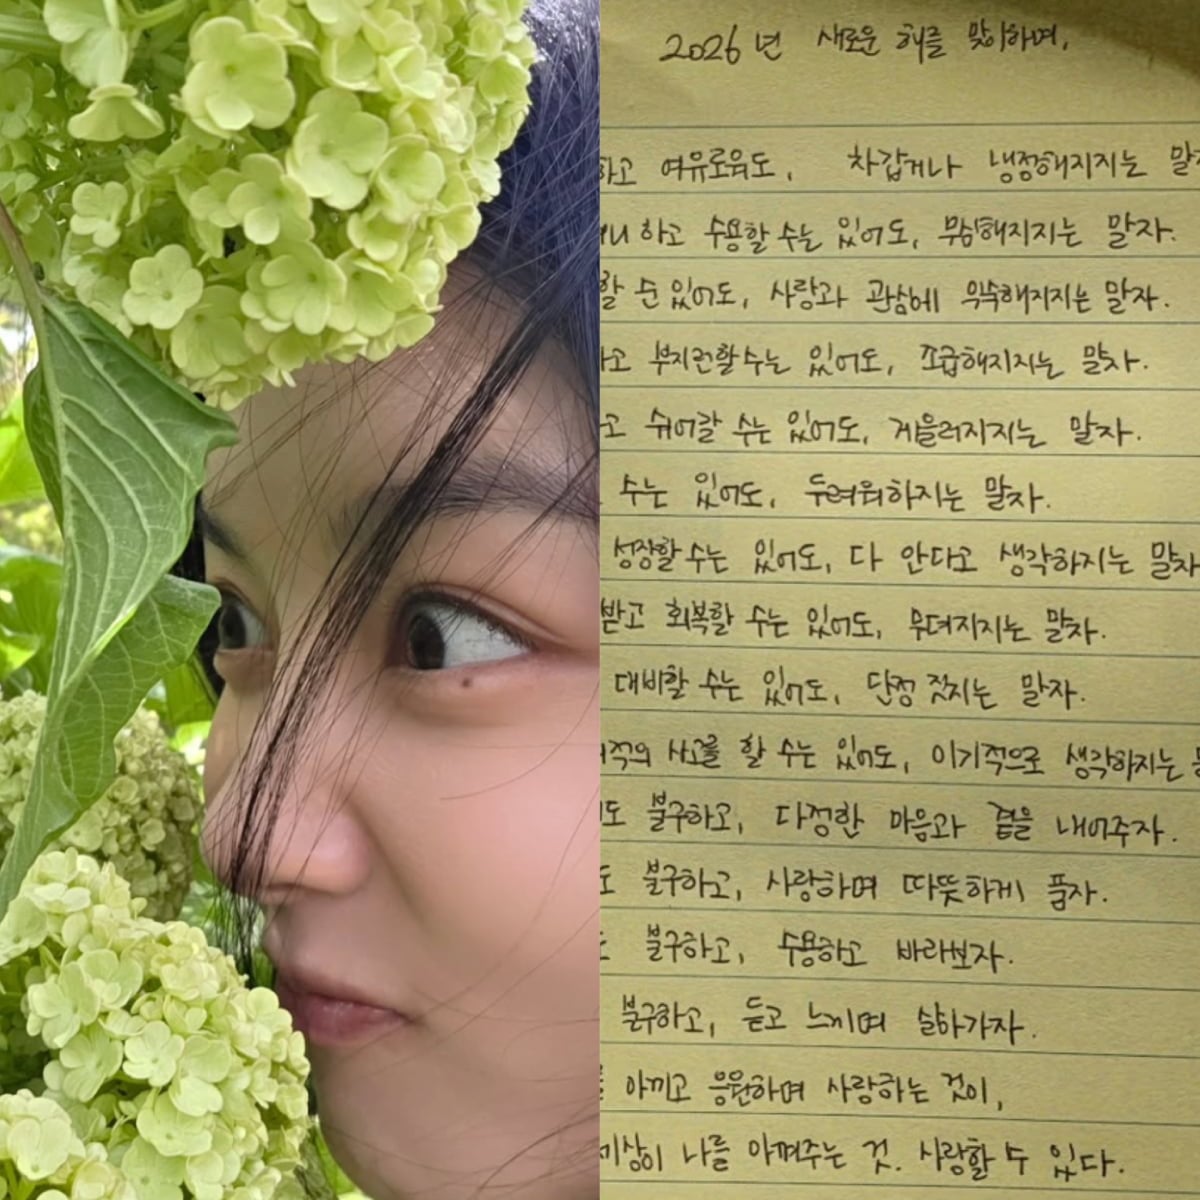 2026년 새로운 해를 맞이하며,
하고 여유로워도, 차갑거나 냉정해지지는 말자
하고 수용할 수는 있어도, 무심해지지는 말자.
할 순 있어도, 사랑과 관심에 익숙해지지는 말자.
고 부지런할 수는 있어도, 조급해지지는 말자.
고 쉬어갈 수는 있어도, 게을러지지는 말자.
수는 있어도, 두려워하지는 말자.
성장할 수는 있어도, 다 안다고 생각하지는 말자
받고 회복할 수는 있어도, 무뎌지지는 말자.
대비할 수는 있어도, 단정 짓지는 말자.
적의 사고를 할 수는 있어도, 이기적으로 생각하지는
도 불구하고, 다정한 마음과 곁을 내어주자.
도 불구하고, 사랑하며 따뜻하게 품자.
불구하고, 수용하고 바라보자.
불구하고, 듣고 느끼며 살아가자.
아끼고 응원하며 사랑하는 것이,
세상이 나를 아껴주는 것. 사랑할 수 있다.